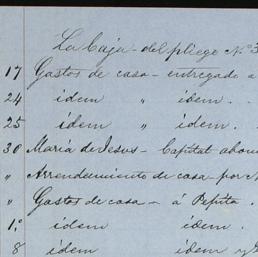 La Caja - del pliego N.º 3
17 Gastos de casa - entregado á
24 idem " idem .
25 idem " idem .
30 Maria de Jesus - Capital abon
" Arrendamiento de casa por
" Gastos de casa - á Pepita .
1.º idem idem .
8 idem idem y